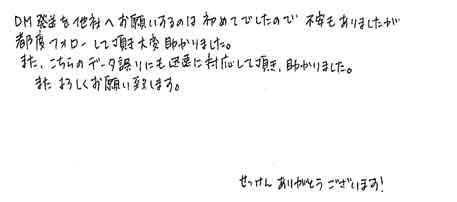 DM発送を他社へお願いするのは初めてでしたので不安もありましたが
都度フォローして頂き大変助かりました。
また、こちらのデータ誤りにも迅速に対応して頂き、助かりました。
また よろしくお願い致します。
せっけん ありがとうございます!